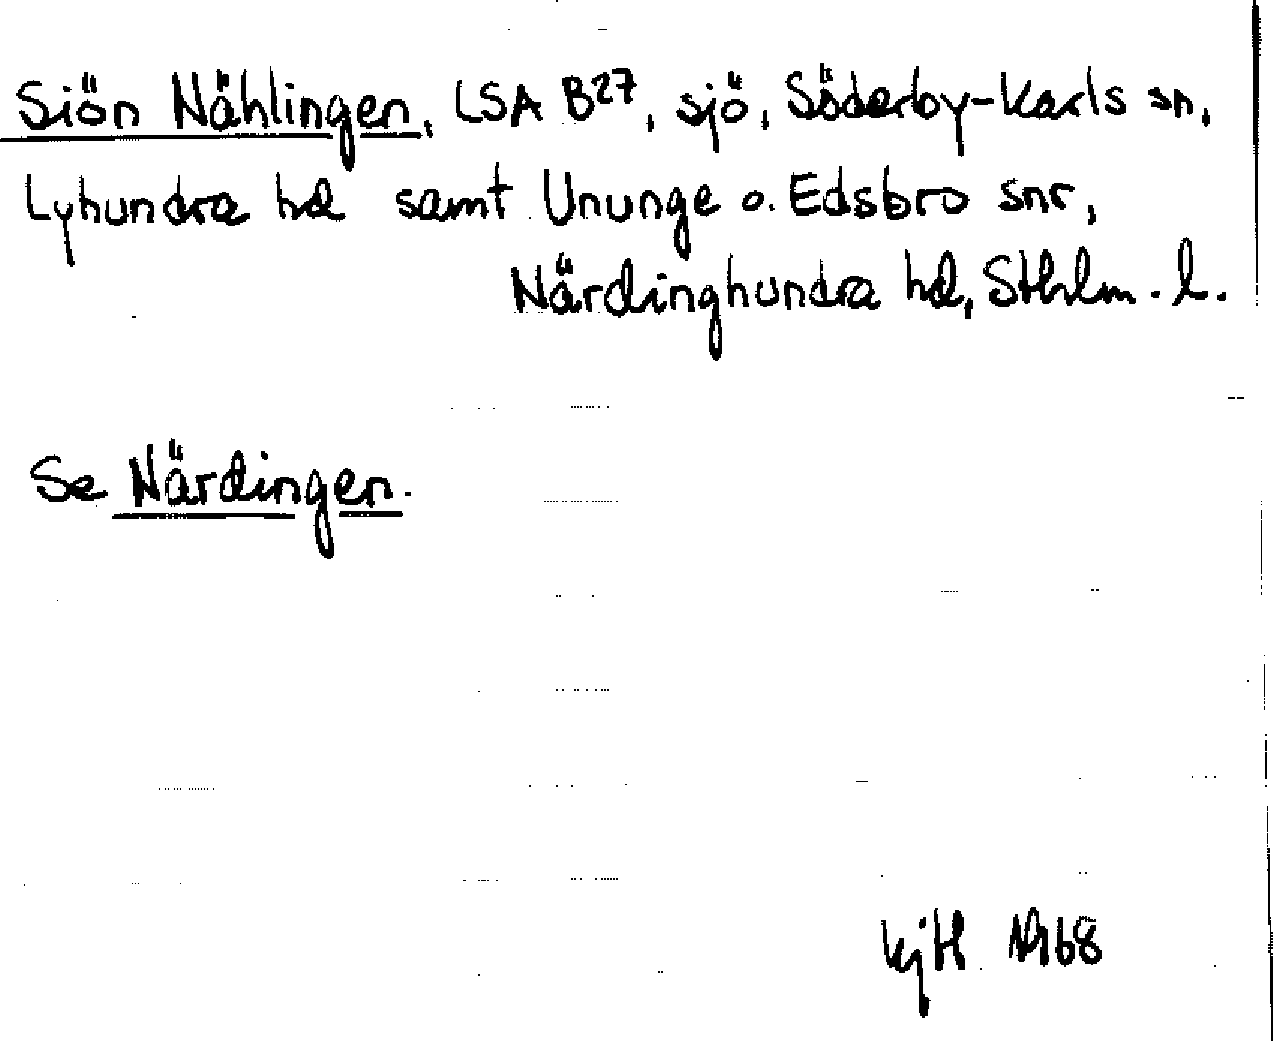 Siön Nählingen, LSA B27, sjö, Söderby-Karls sn,
Lyhundra hd samt Ununge o. Edsbro snr,
Närdinghundra hd, Sthlm. l.
Se Närdingen.
KjH 1968